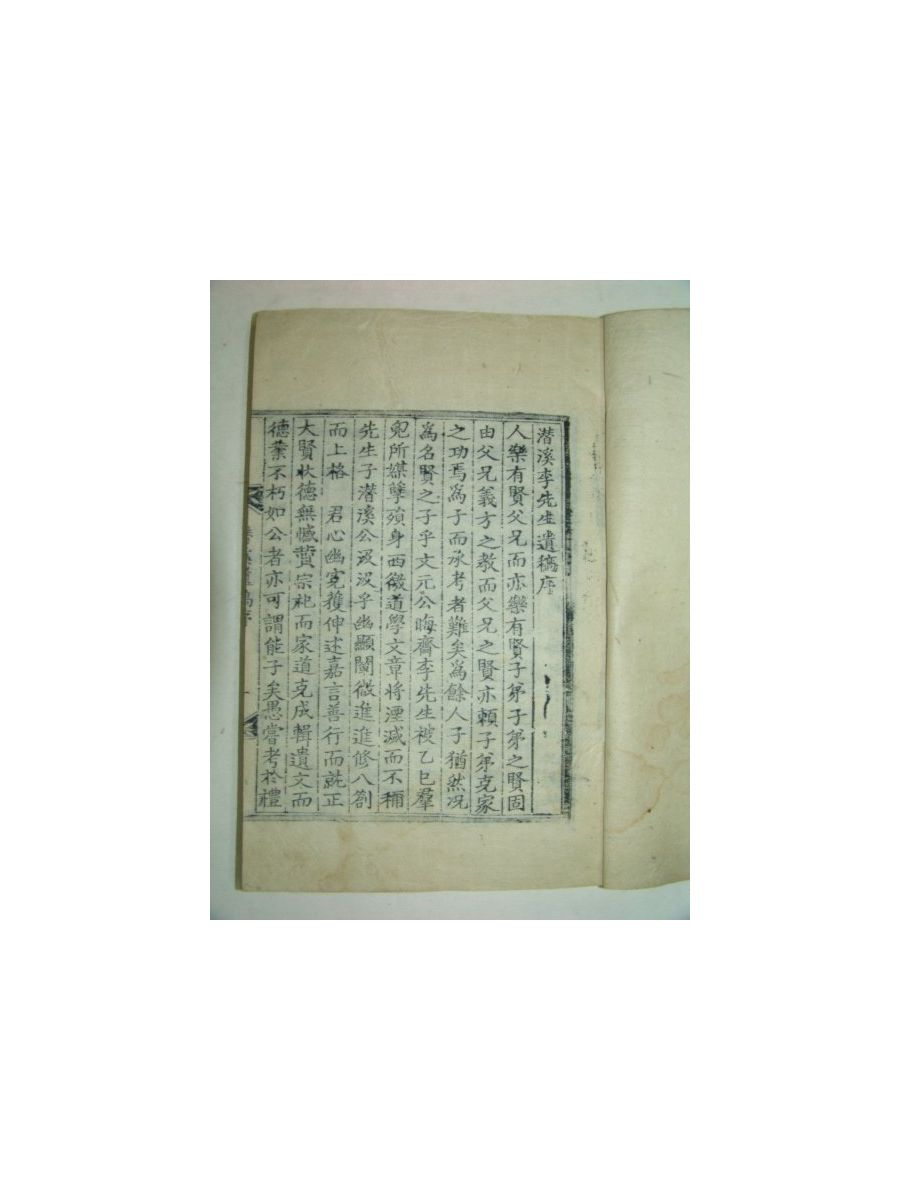 潜溪李先生遺稿序
人樂有賢父兄而亦樂有賢子弟子弟之賢固
由父兄義方之敎而父兄之賢亦頼子弟克家
之功焉爲子而承考者難矣爲餘人子猶然况
爲名賢之子乎文元公晦齋李先生被乙巳羣
兇所媒孽殞身西徼道學文章將湮滅而不稱
先生子潜溪公汲汲乎幽顯闡微進進修八劄
而上格 君心幽寃獲伸述嘉言善行而就正
大賢狀德無憾賛宗祀而家道克成輯遺文而
德業不朽如公者亦可謂能子矣愚嘗考於禮